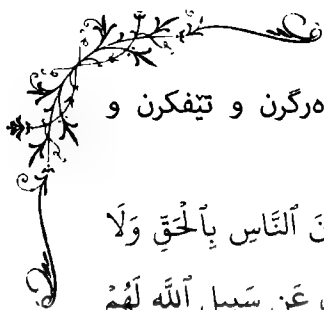 ەرگرن و تێفکرن و
نَ ٱلنَّاسِ بِٱلْحَقِّ وَلَا
عَن سَبِيلِ ٱللَّهِ لَهُمْ